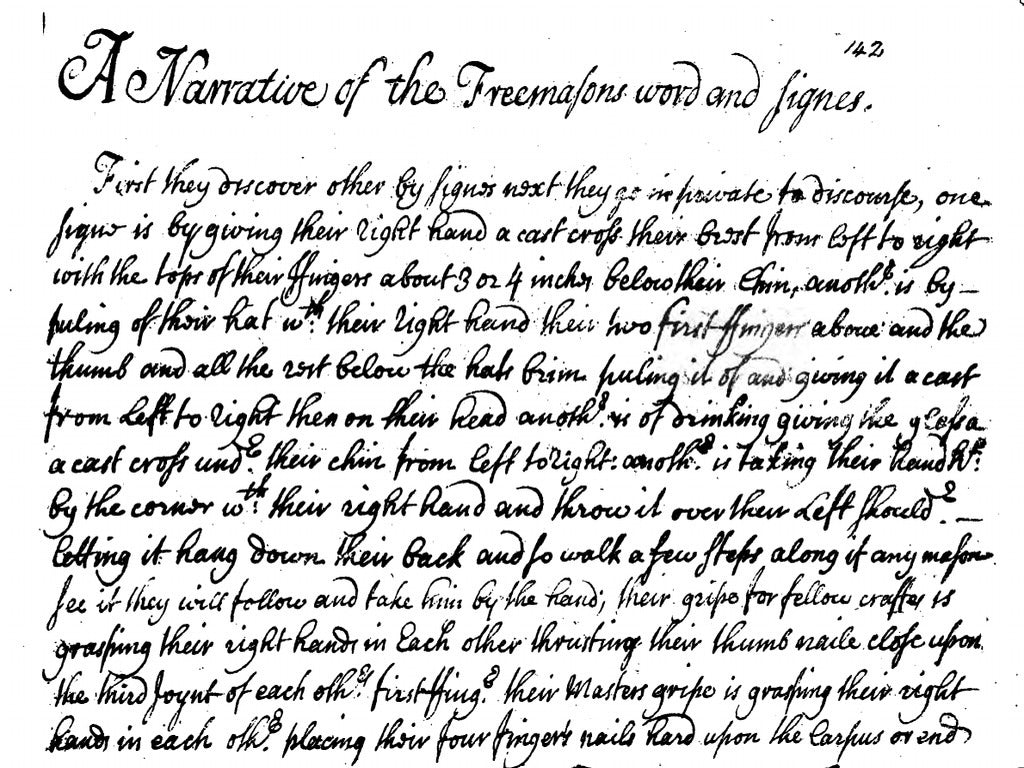 142
A Narrative of the Freemasons word and signes.
First they discover other by signes next they go in private to discourse, one
signe is by giving their right hand a cast cross their brest from left to right
with the tops of their ffingers about 3 or 4 inches below their Chin, anothr. is by
puling of their hat wth. their right hand their two first ffingers above and the
thumb and all the rest below the hats brim puling it of and giving it a cast
from Left to right then on their head anothr. is of drinking giving the
a cast cross undr. their chin from left to right: anothr. is taking their
by the corner wth. their right hand and throw it over their Left shouldr.
letting it hang down their back and so walk a few steps along if any mason
see it they will follow and take him by the hand, their gripe for fellow craftes is
grasping their right hands in Each other thrusting their thumb naile close upon
the third Joynt of each othrs first ffingr. their Masters gripe is grasping their right
hands in each othr. placing their four fingers nails hard upon the Carpus or end